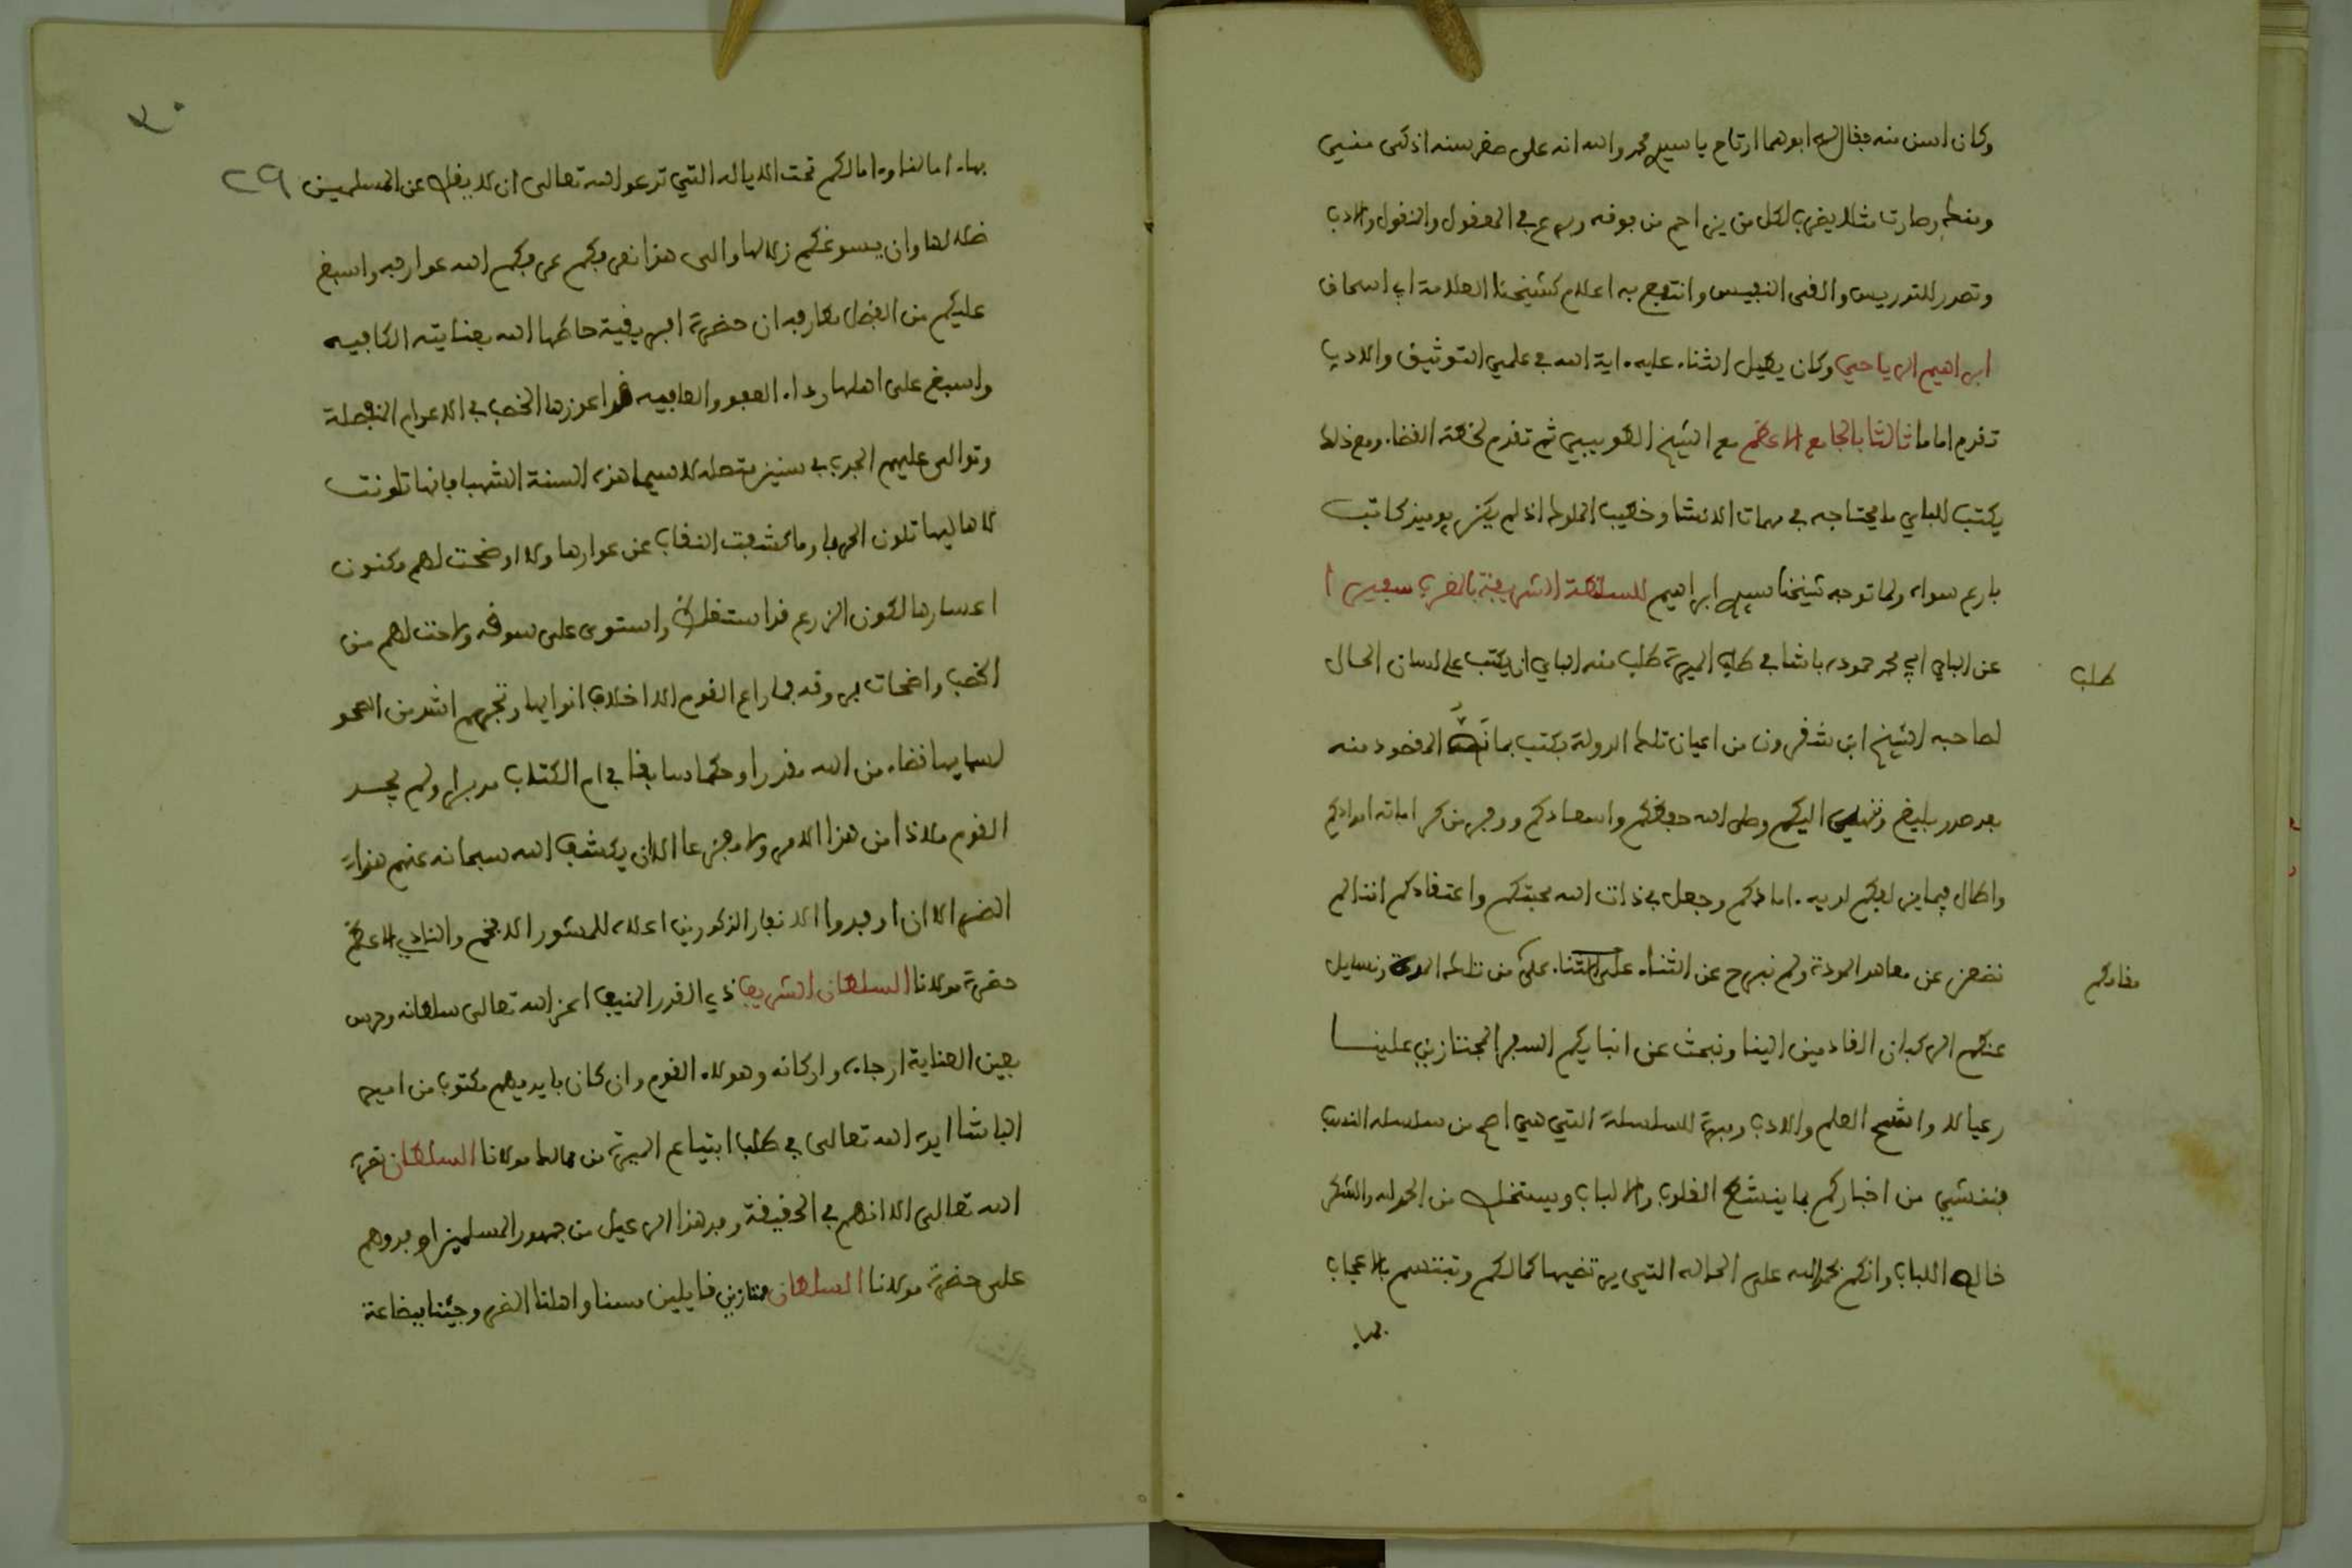 وكان اسن منه فقال له ابوهما ارتاح يا سيدي محمد والله انه على صغر سنه اذكى منيي
وصارت مثلا يضرب لكل من يزاحم من فوقه وبرع في المعقول والمنقول والادب
وتصدر للتدريس والفى النفيس وانتفع به اعلام كشيخنا العلامة ابي اسحاق
ابراهيم الرياحي وكان يطيل الثناء عليه ءاية الله في علمي التوثيق والادب
تقدم اماما ثالثا بالجامع الاعظم مع الشيخ الطويبي ثم تقدم لخطة القضاء ومع ذلك
يكتب للباي ما يحتاجه في مهمات الانشا وخطب الملوك اذ لم يكن يوميذ كاتب
بارع سواه ولما توجه شيخنا سيدي ابراهيم للسلطنة الشريفة بالمغرب سفيرا
عن الباي ابي محمد حمودة باشا في طلب الميرة طلب منه الباي ان يكتب على لسان الحال
طلب
لصاحبه الشيخ ابن شقرون من اعيان تلك الدولة بكتب بما نصه المقصود منه
بعد صدر بليغ وننهي اليكم وصل الله حفظكم واسعادكم ووفر من كرامته امدادكم
واطال فيما يزلفكم لديه ءامادكم وجعل في ذات الله محبتكم واعتقادكم اننا لم
نضعن عن معاهد المودة ولم نبرح عن الثناء على من تلك المدة ونسايل
مفادكم
عنكم الركبان القادمين الينا ونبحث عن انبايكم السفر المجتازين علينا
رعيا لذ واشج العلم والادب وبرة للسلسلة التي هي اصح من سلسلة النسب
فننتشي من اخباركم بما ينشط القلوب والالباب ويستحق من الحمد لله والشكر
خالص اللباب وانكم بحمد الله على الحالة التي يرتضيها كمالكم وتبتسم بالاعجاب
بها
٣٠
٢٩
بهاء امالنا وءامالكم تحت الايالة التي ندعو الله تعالى ان لا يقلص عن المسلمين
ظلالها وان يسوغكم زلالها والى هذا نعرفكم عرفكم الله عوارفه واسبغ
عليكم من الفضل مطارفه ان حضرة افريقية حاطها الله بعنايته الكافيه
واسبغ على اهلها رداء العفو والعافيه قد اعوزها الخصب في الاعوام المنفصلة
وتوالى عليهم الجدب في سنين متصلة لا سيما هذه السنة الشهبا فانها تلونت
لاهاليها تلون الحربا وما كشفت النقاب عن عوارها ولا اوضحت لهم مكنون
اعسارها لكون الزرع قد استغلظ واستوى على سوقه ولاحت لهم من
الخصب واضحات بروقه فما راع القوم الا اخلاف انوايها وتجهم اشد من الصحو
لسمايها قضاء من الله مقدرا وحكما سابقا في ام الكتاب مدبرا ولم يجد
القوم ملاذا من هذا الامر ولا مفزعا الا ان يكشف الله سبحانه عنهم هذا
الضر الا ان اوفدوا الانفار المذكورين اعلاه للمشور الافخم والنادي الاعظم
حضرة مولانا السلطان الشريف ذي القدر المنيف اعز الله تعالى سلطانه وحرس
بعين العناية ارجاءه واركانه وهولاء القوم وان كان بايديهم مكتوب من امير
الباشا ايده الله تعالى في طلب ابتياع الميرة من ممالك مولانا السلطان نصره
الله تعالى الا انهم في الحقيقة وفد هذا الرعيل من جمهور المسلمين اوفدوهم
على حضرة مولانا السلطان ممتازين قايلين مسنا واهلنا الضر وجئنا ببضاعة